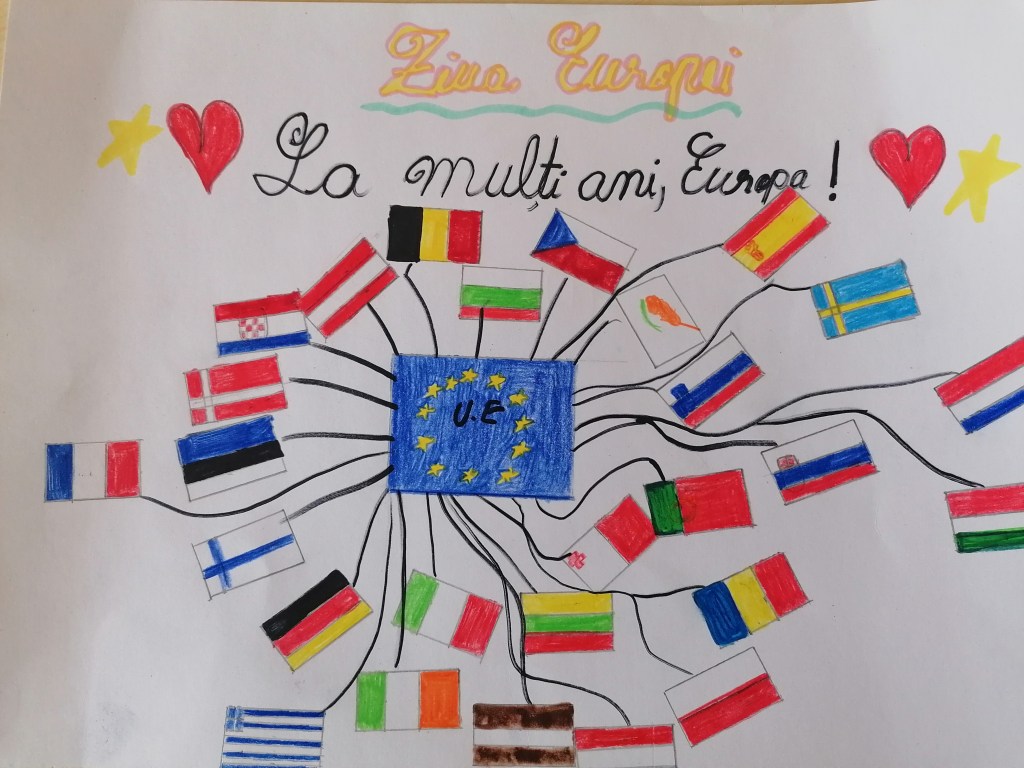 Ziua Europei
La mulți ani, Europa!
U.E